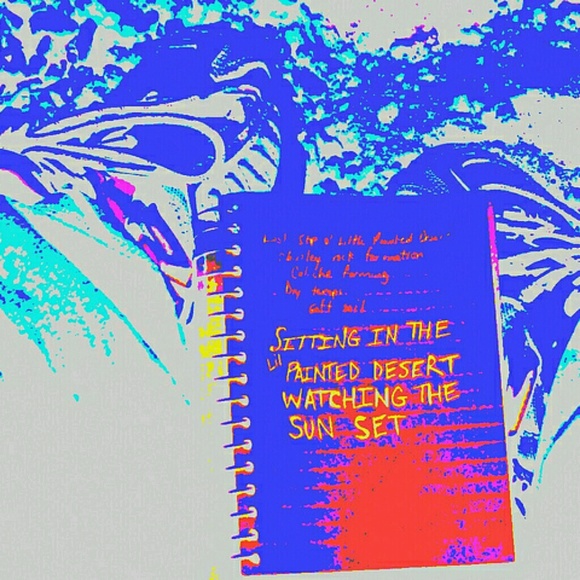 Last stop @ Little Painted Desert
rock formation
Caliche forming
Day temps.
Soft soil
SITTING IN THE
Lil PAINTED DESERT
WATCHING THE
SUN SET